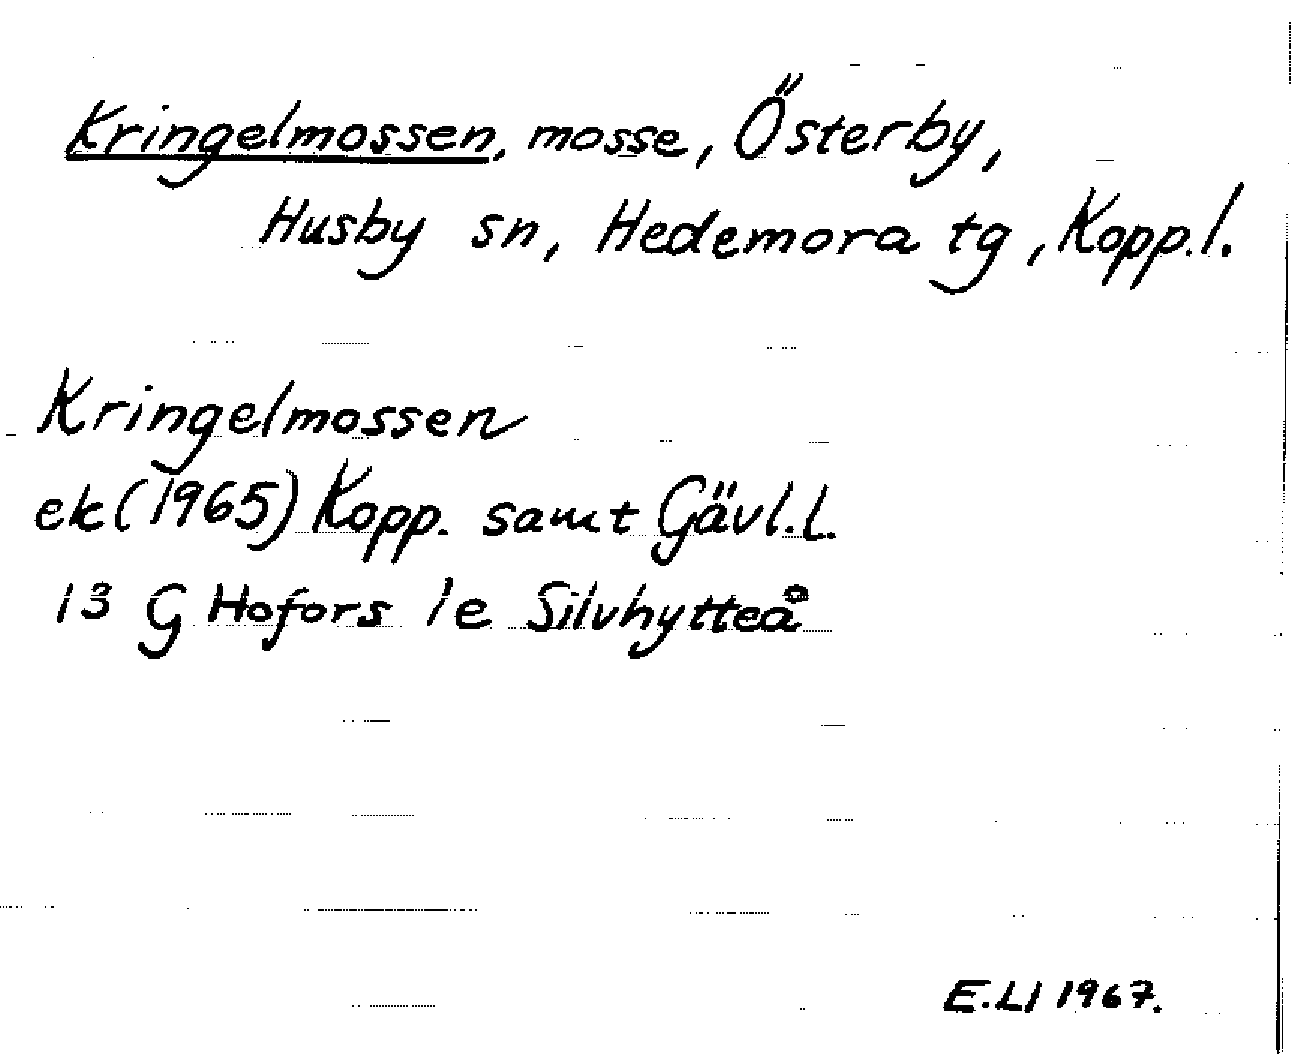 Kringelmossen, mosse, Österby,
Husby sn, Hedemora tg, Kopp.l.
Kringelmossen
ek (1965) Kopp. samt Gävl.l.
13 G Hofors 1e Silvhytteå
E.LI 1967.